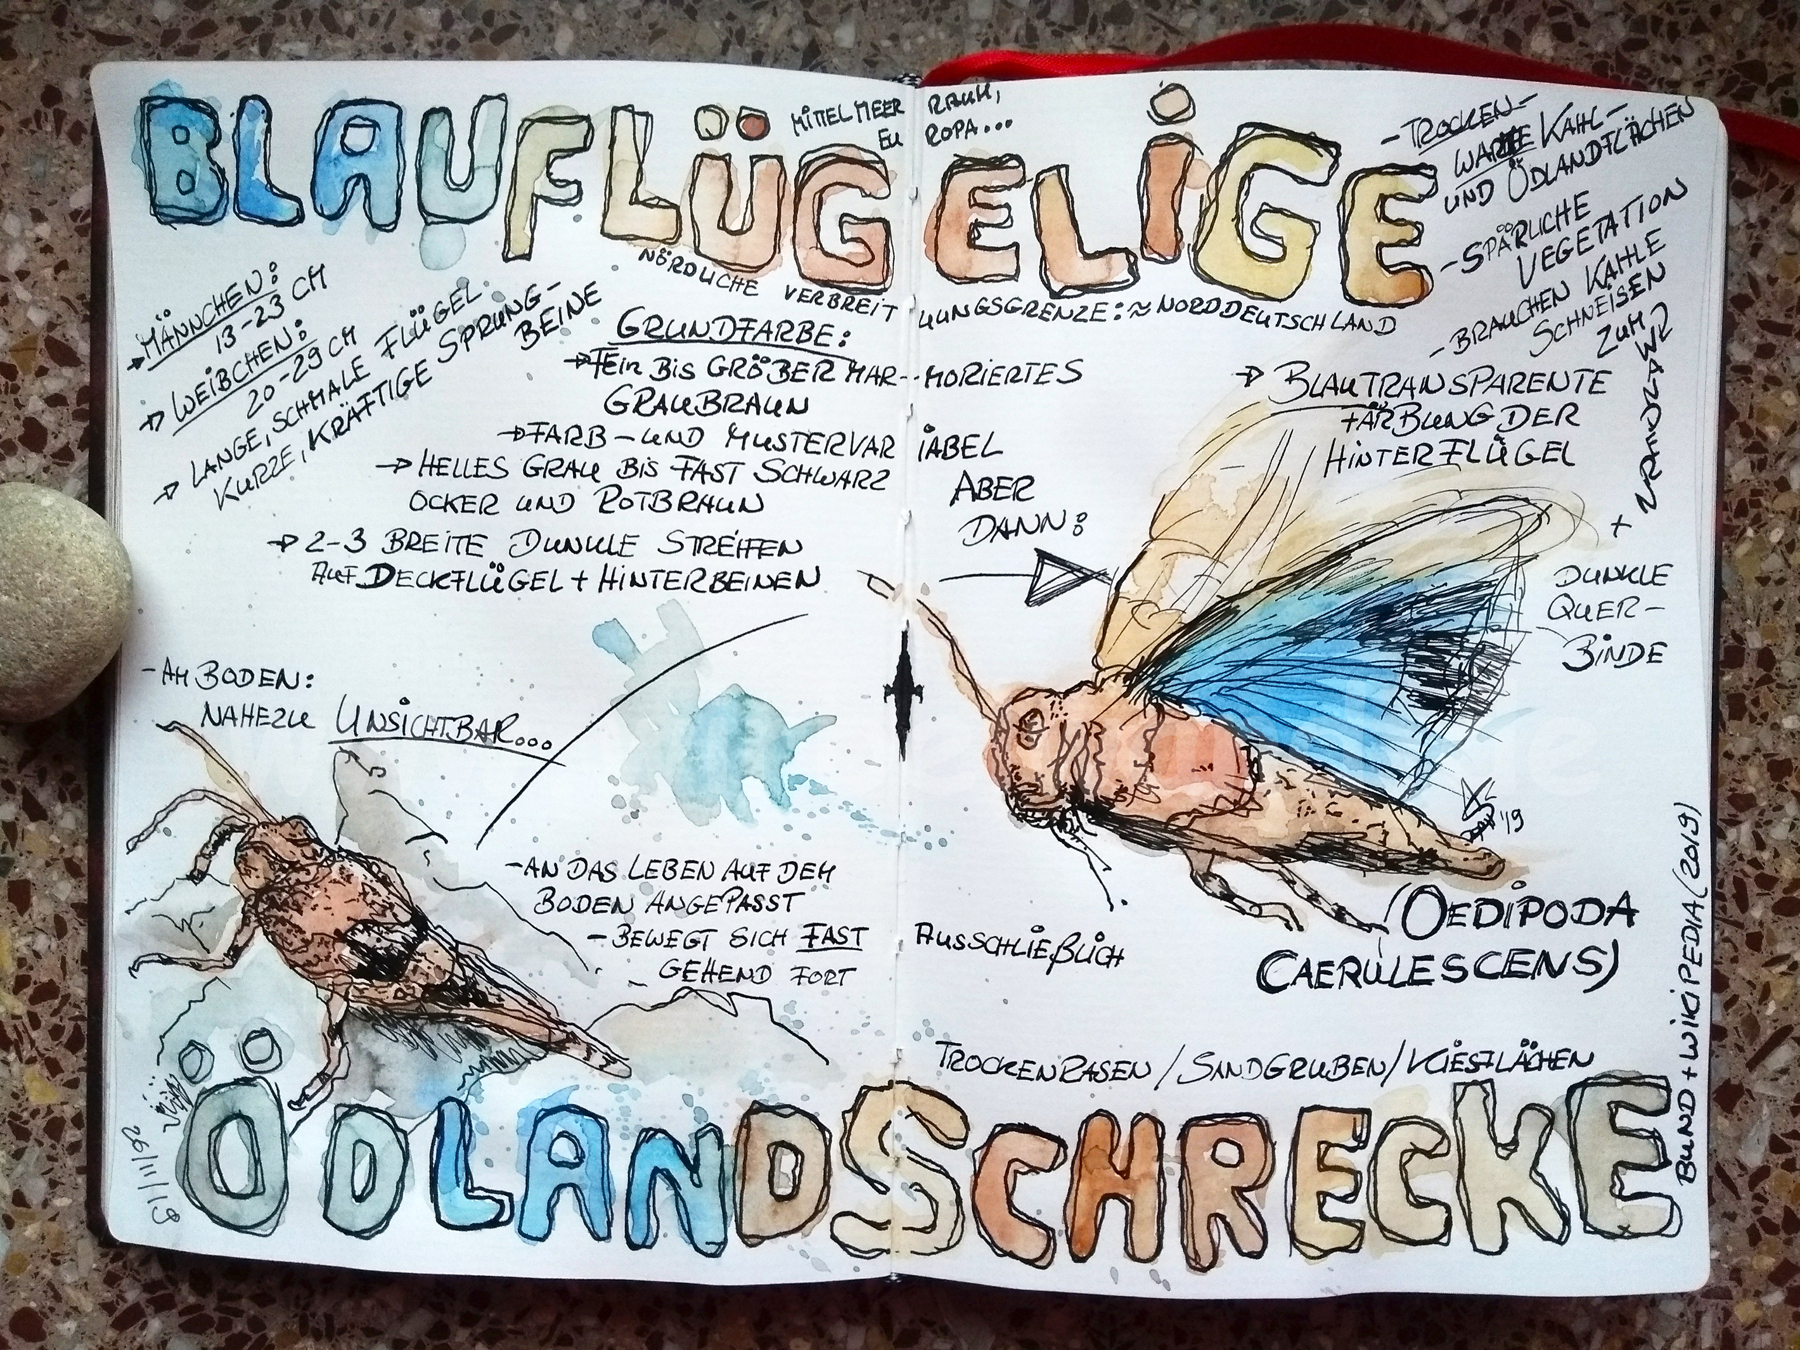 BLAUFLÜGELIGE
MITTELMEERRAUM,
EUROPA...
NÖRDLICHE VERBREITUUNGSGRENZE: ≈ NORDDEUTSCHLAND
MÄNNCHEN:
13-23 CM
WEIBCHEN:
20-29 CM
LANGE, SCHMALE FLÜGEL
KURZE, KRÄFTIGE SPRUNG-
BEINE
GRUNDFARBE:
FEIN BIS GRÖBER MAR-MORIERTES
GRAUBRAUN
FARB- UND MUSTERVARIABEL
HELLES GRAU BIS FAST SCHWARZ
OCKER UND ROTBRAUN
2-3 BREITE DUNKLE STREIFEN
AUF DECKFLÜGEL + HINTERBEINEN
ABER
DANN:
- TROCKEN-
WARME KAHL-
UND ÖDLANDFLÄCHEN
- SPÄRLICHE
VEGETATION
- BRAUCHEN KAHLE
SCHNEISEN
ZUM
BLAUTRANSPARENTE
FÄRBUNG DER
HINTERFLÜGEL
+
DUNKLE
QUER-
BINDE
- AM BODEN:
NAHEZU UNSICHTBAR...
- AN DAS LEBEN AUF DEM
BODEN ANGEPASST
- BEWEGT SICH FAST AUSSCHLIEßLICH
GEHEND FORT
'19
(OEDIPODA
CAERULESCENS)
TROCKENRASEN / SANDGRUBEN / KIESFLÄCHEN
ÖDLANDSCHRECKE
26/11/19
BUND + WIKIPEDIA (2019)